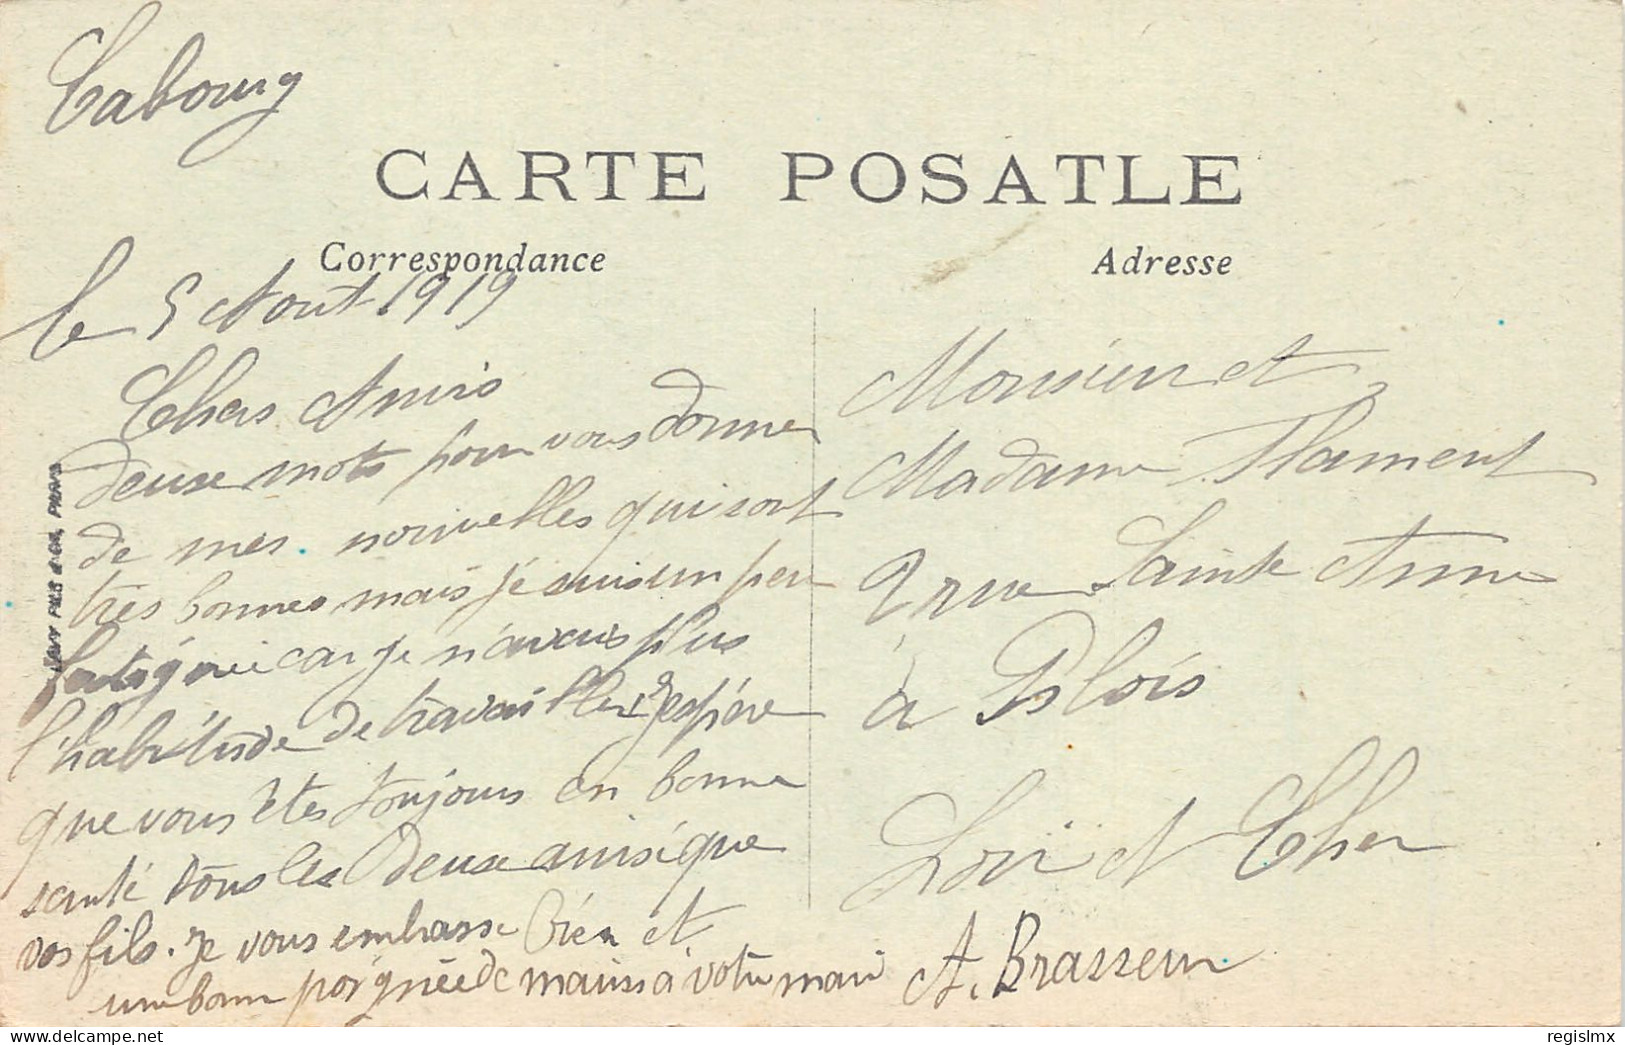 Cabourg
CARTE POSATLE
Correspondance
Adresse
le 5 Aout 1919
Chers Amis
deuxe mots pour vous donner
de mes nouvelles qui sont
très bonnes mais je suis un peu
fatiguéé car je n'avais plus
l'habitude de travailler J'espére
que vous êtes toujours en bonne
santé tous les deuxe ainsi que
vos fils. Je vous embrasse bien et
une bonne poignée de mains à votre mari
A. Brasseur
Monsieur et
Madame Flament
9 rue Sainte Anne
à Blois
Loir et Cher
LEVY FILS & Cie, PARIS
delcampe.net
regislmx